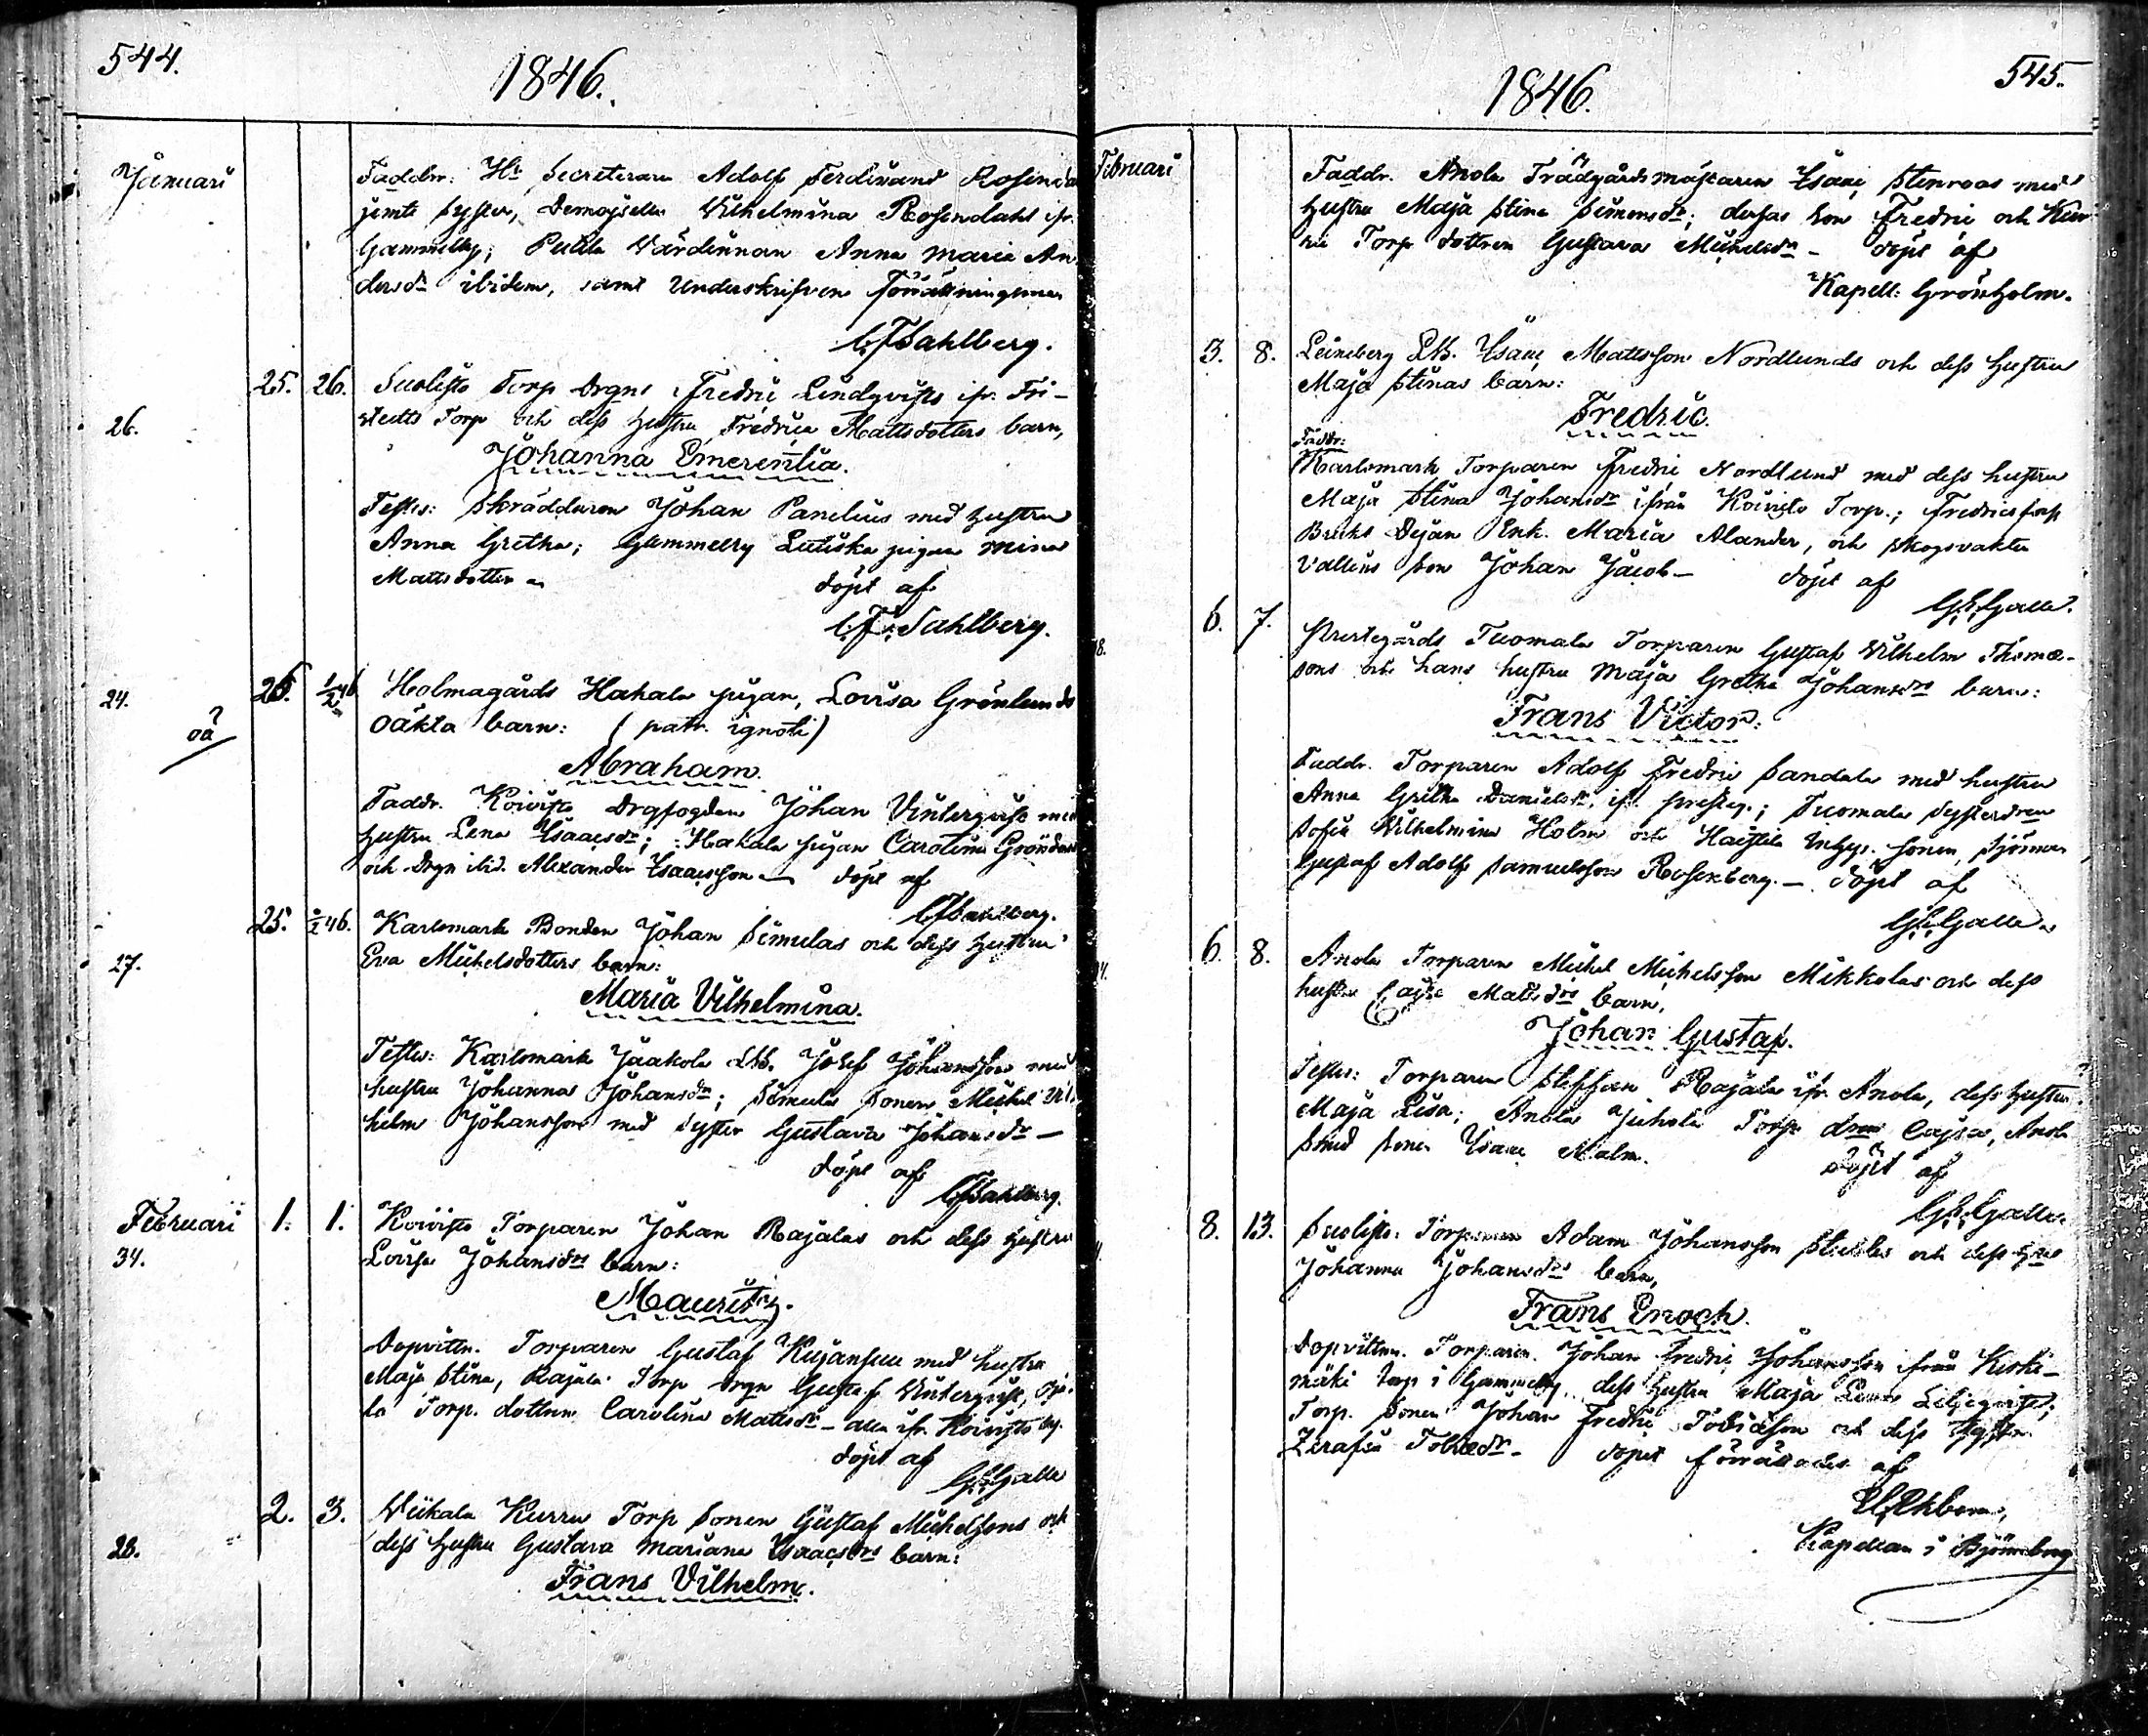 544.
1846.
Januari
Faddr: Hr Secreteraren Adolf Ferdinand
jemte Syster, Demoiselle Wilhelmina Rosendahl ifr.
Gammelby; Värdinnan Anna Maria An
dersdr ibidem, samt Underskrifven Förrättningsman
CFSahlberg.
25. 26. Suolisto Torp Drgns Fredric Lindqvists ifr.
26. Torp och dess hustru Fredrica Mattsdotters barn,
Johanna Emerentia.
Testes: Skräddaren Johan Panelius med hustru
Anna Gretha; Gammelby pigan Mina
Mattsdotter döpt af
C.F. Sahlberg.
24. 26. 1/2 46. Holmagårds Hakala pigan, Lovisa Grönlunds
oä oäkta barn: (patr. ignoti)
Abraham.
Faddr. Koivisto Drgfogden Johan Vinterqvist med
hustru Lena Isaacsdr; Hakala pigan Carolina
och Drgn ibid. Alexander Isaacsson döpt af
CFSahlberg.
25. 2/2 46. Karlsmark Bonden Johan Simulas och dess hustru
27. Eva Michelsdotters barn:
Maria Vilhelmina.
Testes: Karlsmark Jaakola Josef Johansson med
hustru Johanna Johansdr; Simula Sonen Michel Vil
helm Johansson med syster Gustava Johansdr
döpt af
CFSahlberg.
Februari 1. 1. Koivisto Torparen Johan Rajalas och dess hustru
34. Lovisa Johansdrs barn:
Mauritz.
Dopvittn. Torparen Gustaf Kujansuu med hustru
Maja Stina, Rajala Torp Drgn Gustaf Winterqvist,
la Torp. dottren Carolina Mattsdr alla ifr. Koivisto by.
döpt af
G.E.Galle
2. 3. Wiikala Kurru Torp Sonen Gustaf Michelsons och
28. dess hustru Gustava Mariana Isaacsdrs barn:
Frans Vilhelm.
1846.
545.
Februari
Faddr. Anola Trädgårdsmästaren Isaac Stenroos med
hustru Maja Stina Simonsdr; deras Son Fredric och Kur
ru Torp dottren Gustava Michelsdr döpt af
Kapell: Grönholm.
3. 8. Leineberg Isaac Mattsson Nordlunds och dess hustru
Maja Stinas barn:
Fredric.
Faddr:
Karlsmark Torparen Fredric Nordlund med dess hustru
Maja Stina Johansdr ifrån Koivisto Torp.; Fredricsfors
Bruks Dejan Enk. Maria Alander, och Skogsvakten
Vallins Son Johan Jacob döpt af
G.E.Galle.
6. 7. Prestegårds Tuomala Torparen Gustaf Wilhelm Thomæ-
sons och hans hustru Maja Gretha Johansdrs barn:
Frans Victor.
Faddr. Torparen Adolf Fredric Sandala med hustru
Anna Gretha Danielsdr, ifr. presteg.; Tuomala
Sofia Wilhelmina Holm och Haistila Inhys. Sonen, Sjöman
Gustaf Adolf Samuelsson Rosenberg. döpt af
G.E.Galle
6. 8. Anola Torparen Michel Michelsson Mikkolas och dess
hustru Cajsa Mattsdrs barn,
Johan Gustaf.
Testes: Torparen Steffan Rajala ifr Anola, dess hustru
Maja Lisa; Anola Juhola Torp Cajsa, Anola
Smed Sonen Isaac Malm. döpt af
G.E.Galle
8. 13. Suolisto Torparen Adam Johansson och dess
Johanna Johansdrs barn,
Frans Enoch.
Dopvittnn. Torparen Johan Fredric Johansson ifrån Koski-
mäki torp i Gammelby, dess hustru Maja Lena Liljeqvist;
Torp. Sonen Johan Fredric Tobiæson och dess syster
Zerafia Tobiædr. dopet förrättades af
Kapellan i Björneborg